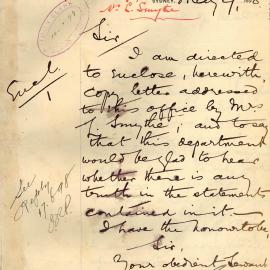 SYDNEY,
Mrs E. Smythe
Sir
Encl.
1
I am directed
to enclose, herewith,
copy letter addressed
to this office by Mrs
Smythe; and to say
that this department
would be glad to hear
whether there is any
truth in the statements
contained in it.
I have the honour to be,
Sir,
Your obedient Servant